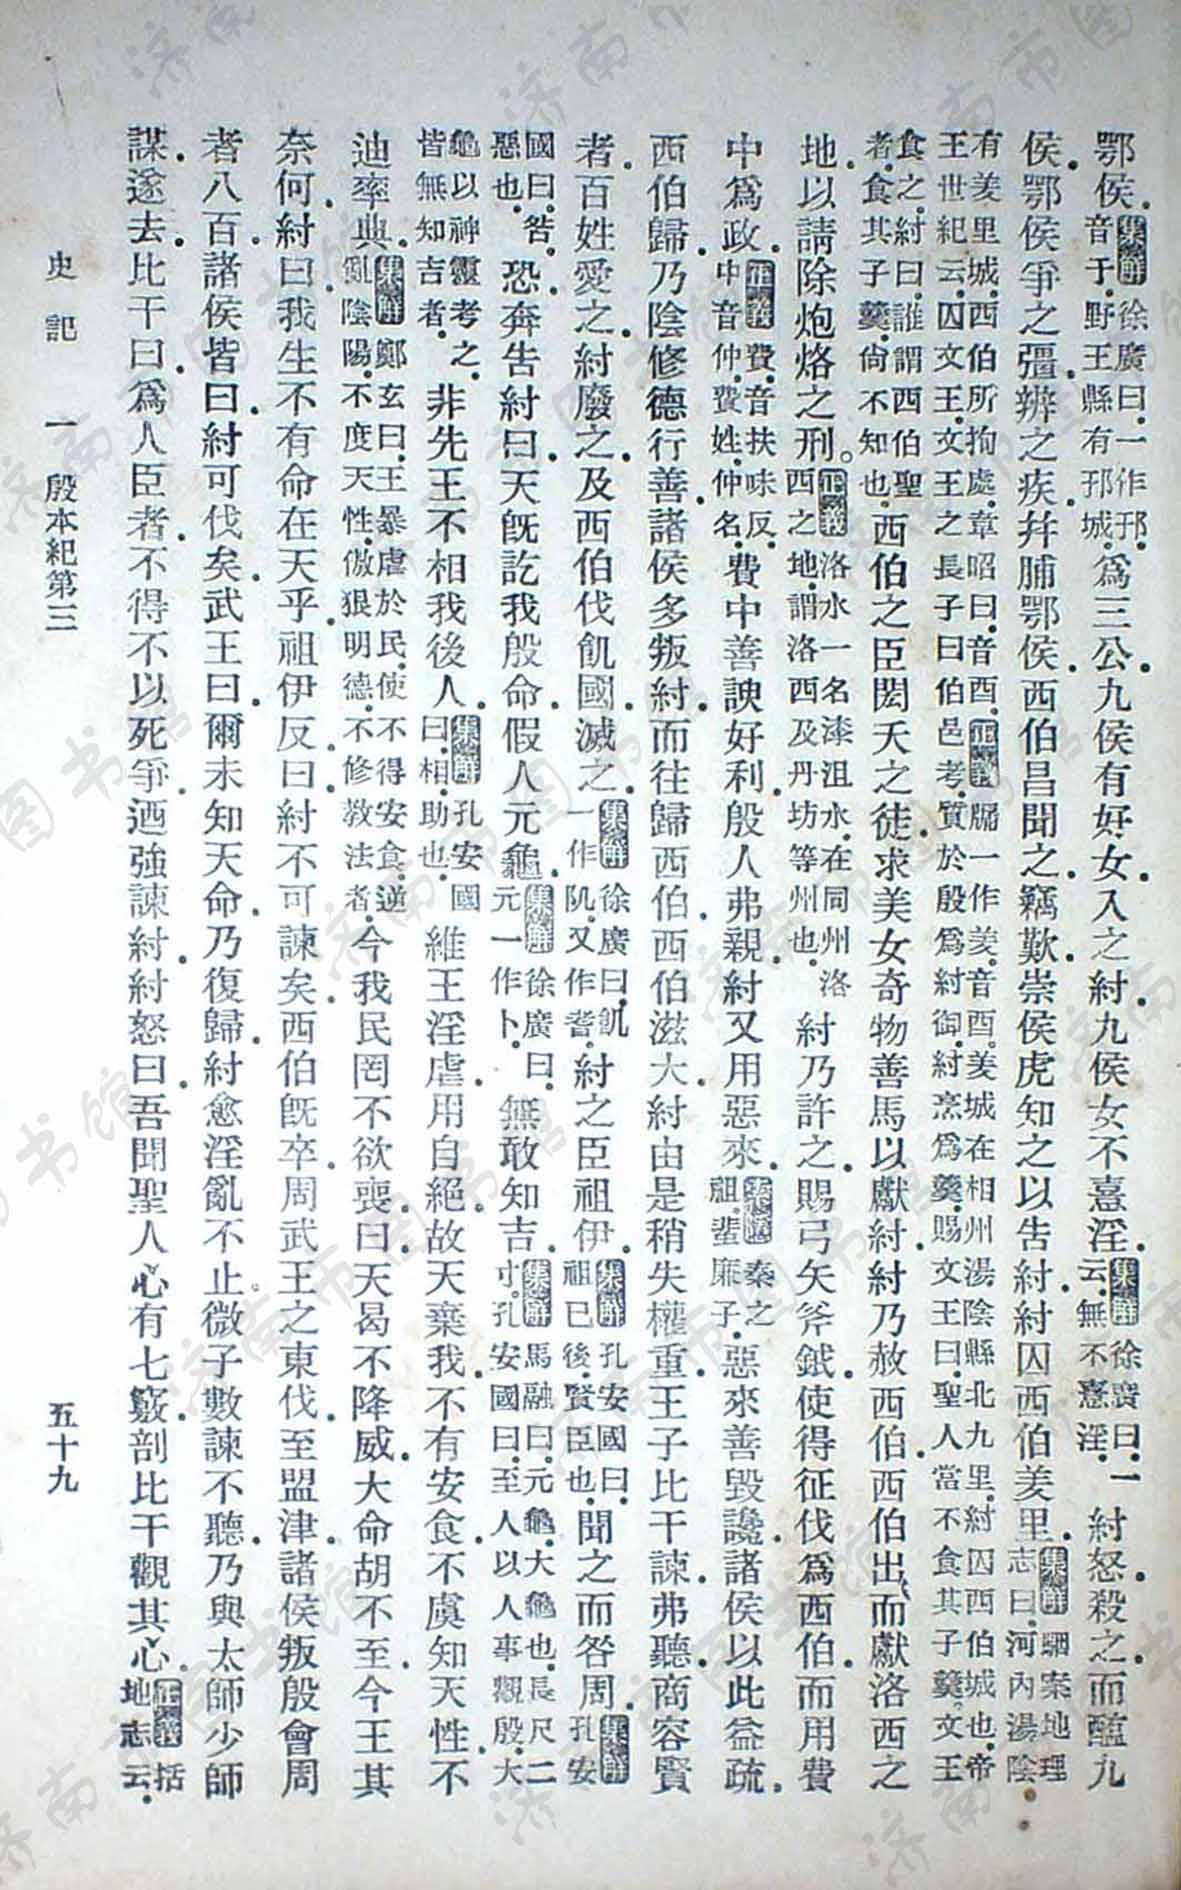 鄂侯．集解徐廣曰．一作邘．音于．野王縣有邘城．爲三公．九侯有好女．入之紂．九侯女不憙淫．集解徐廣曰．一云．無不憙淫．紂怒．殺之．而醢九
侯．鄂侯爭之彊．辨之疾．幷脯鄂侯．西伯昌聞之．竊歎．崇侯虎知之．以告紂．紂囚西伯羑里．集解駰案地理志曰．河內湯陰
有羑里城．西伯所拘處．韋昭曰．音酉．正義牖一作羑．音酉．羑城在相州湯陰縣北九里．紂囚西伯城也．帝王世紀云．囚文王．文王之長子曰伯邑考．質於殷．爲紂御．紂烹爲羹．賜文王．曰．聖人當不食其子羹．文王
食之．紂曰．誰謂西伯聖者．食其子羹．尙不知也．西伯之臣閎夭之徒．求美女奇物善馬以獻紂．紂乃赦西伯．西伯出而獻洛西之
地．以請除炮烙之刑。正義洛水一名漆沮水．在同州洛西之地．謂洛西及丹坊等州也．紂乃許之．賜弓矢斧鉞．使得征伐．爲西伯．而用費
中爲政．正義費．音扶味反．中音仲．費姓．仲名．費中善諛．好利．殷人弗親．紂又用惡來．索隱秦之祖．蜚廉子．惡來善毀讒．諸侯以此益疏．
西伯歸．乃陰修德行善．諸侯多叛紂．而往歸西伯．西伯滋大．紂由是稍失權重．王子比干諫．弗聽．商容賢
者．百姓愛之．紂廢之．及西伯伐飢國．滅之．集解徐廣曰．飢一作𨸝．又作耆．紂之臣祖伊．集解孔安國曰．祖己後．賢臣也．聞之而咎周．集解孔安
國曰．咎．惡也．恐．奔告紂曰．天旣訖我殷命．假人元龜．集解徐廣曰．元一作卜．無敢知吉．集解馬融曰．元龜．大龜也．長尺二寸．孔安國曰．至人以人事觀殷．大
龜以神靈考之．皆無知吉者．非先王不相我後人．集解孔安國曰．相．助也．維王淫虐．用自絕．故天棄我．不有安食．不虞知天性．不
迪率典．集解鄭玄曰．王暴虐於民．使不得安食．逆亂陰陽．不度天性．傲狠明德．不修教法者．今我民罔不欲喪．曰．天曷不降威．大命胡不至．今王其
奈何．紂曰．我生不有命在天乎．祖伊反曰．紂不可諫矣．西伯旣卒．周武王之東伐．至盟津．諸侯叛殷會周
者八百．諸侯皆曰．紂可伐矣．武王曰．爾未知天命．乃復歸．紂愈淫亂不止．微子數諫不聽．乃與太師少師
謀．遂去．比干曰．爲人臣者．不得不以死爭．迺強諫紂．紂怒曰．吾聞聖人心有七竅．剖比干觀其心．正義括地志云．
史記　一　殷本紀第三　五十九